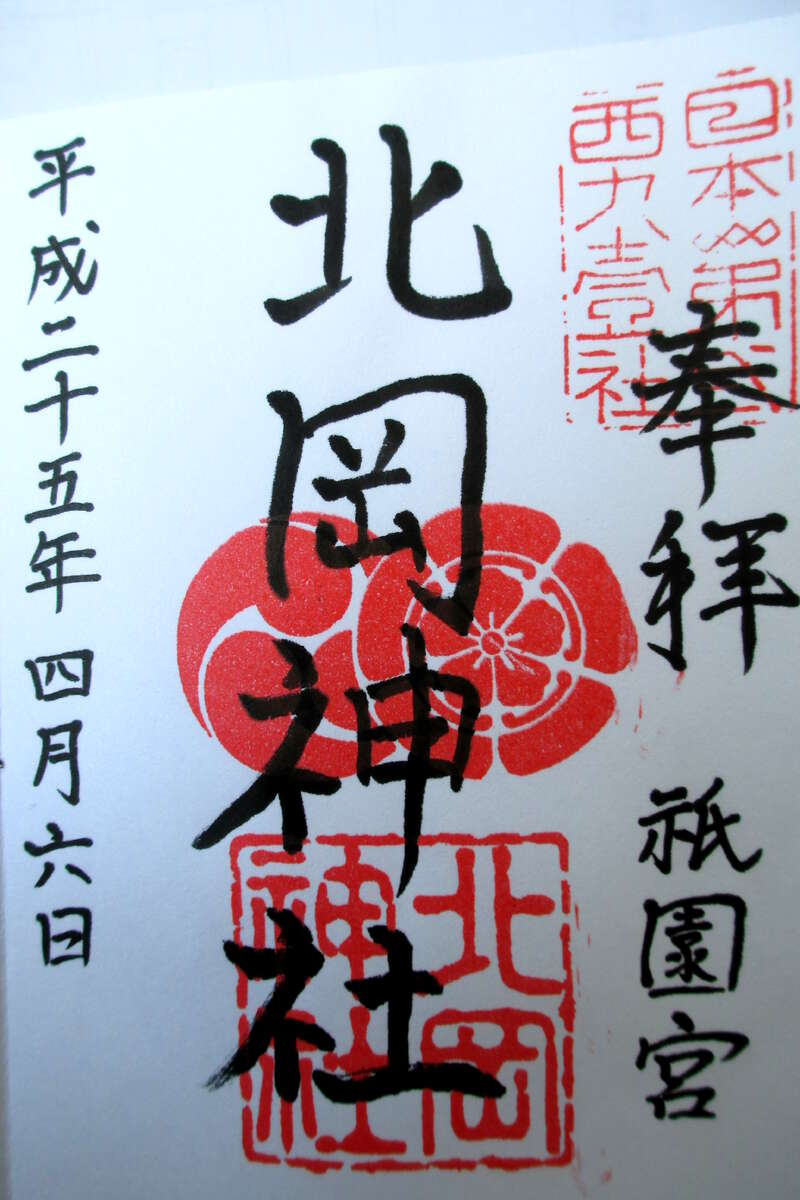 日本
奉拝
祇園宮
北岡神社
北岡
神社
平成二十五年 四月六日